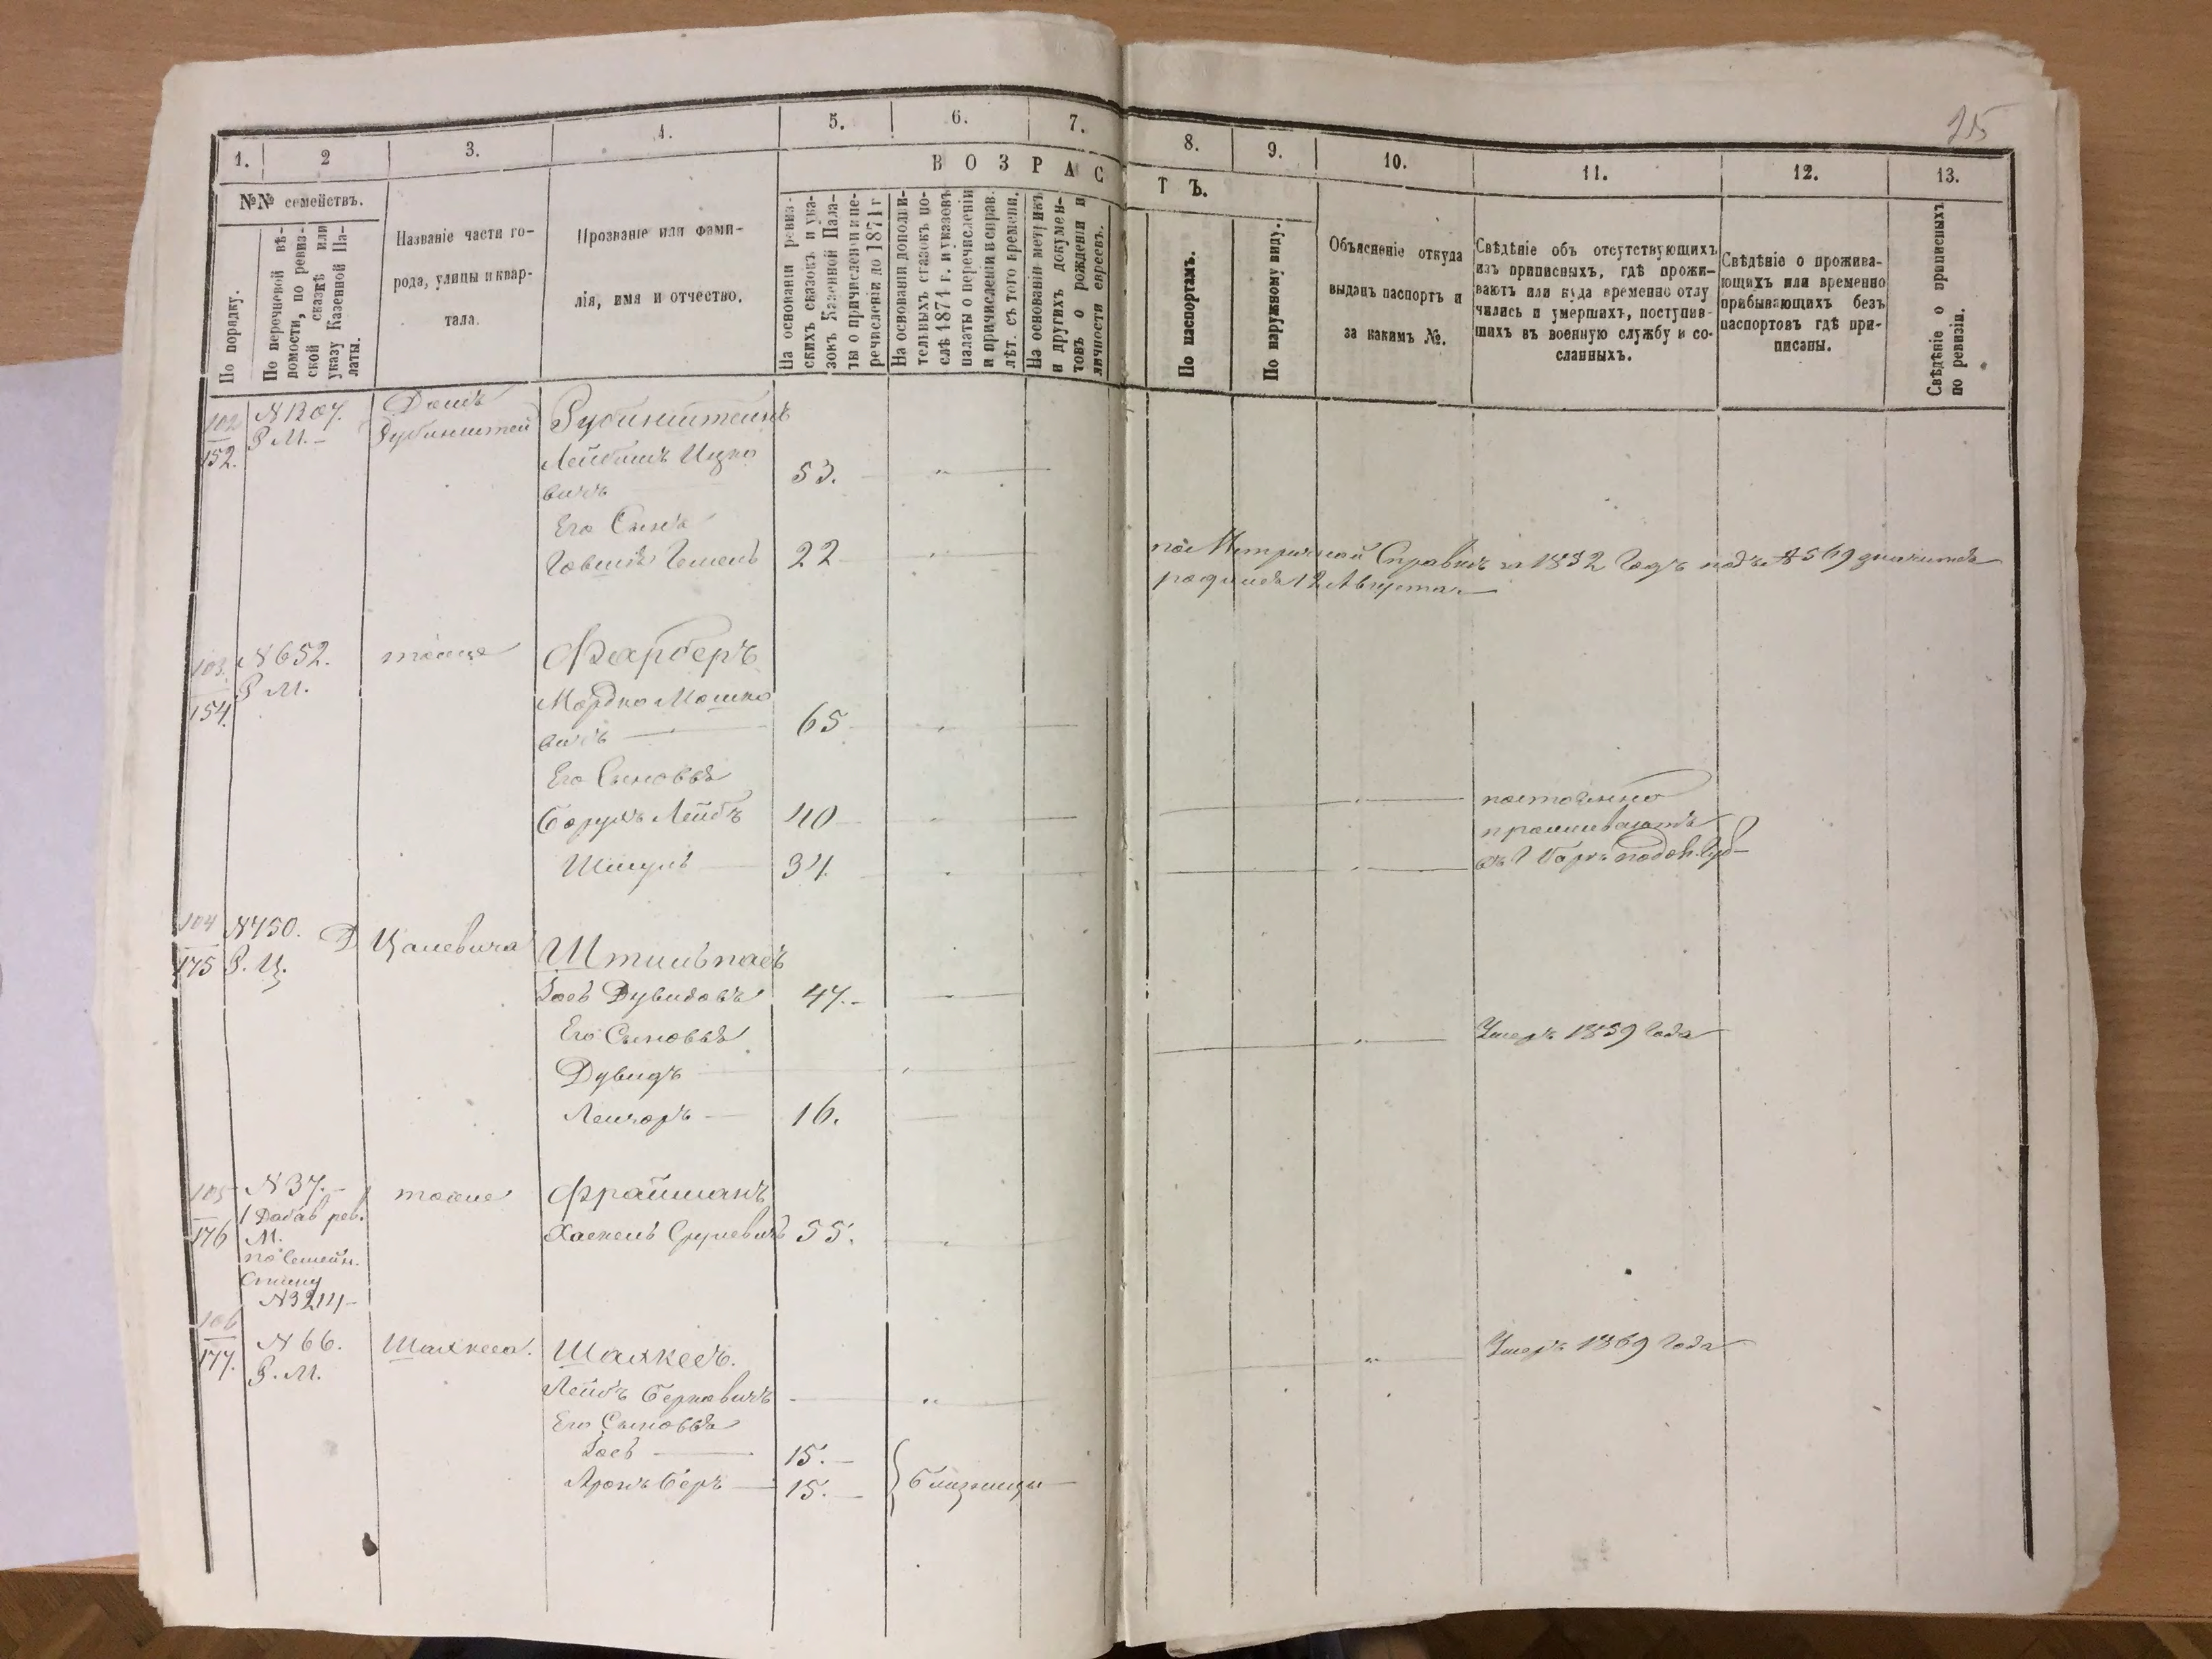 25
1.
2
3.
4.
5.
6.
7.
8.
9.
10.
11.
12.
13.
№№ семействъ.
По порядку.
По перечневой вѣ-
домости, по ревиз-
ской сказкѣ или
указу Казенной Па-
латы.
Названіе части го-
рода, улицы и квар-
тала.
Прозваніе или фами-
лія, имя и отчество.
ВОЗРАС
ТЪ.
На основаніи ревиз-
скихъ сказокъ и ука-
зовъ Казенной Пала-
ты о причисленіи и пе-
речисленіи до 1871 г
На основаніи дополни-
тельныхъ сказокъ по-
слѣ 1871 г. и указовъ
палаты о перечисленіи
и причисленіи и справ.
лѣт. съ того времени.
На основаніи метрикъ
и другихъ докумен-
товъ о рожденіи и
личности евреевъ.
По паспортамъ.
По наружному виду.
Объясненіе откуда
выданъ паспортъ и
за какимъ №.
Свѣдѣніе объ отсутствующихъ
изъ приписныхъ, гдѣ прожи-
ваютъ или куда временно отлу
чились и умершихъ, поступив-
шихъ въ военную службу и со-
сланныхъ.
Свѣдѣніе о прожива-
ющихъ или временно
прибывающихъ безъ
паспортовъ гдѣ при-
писаны.
Свѣдѣніе о приписныхъ
по ревизіи.
102
152.
№1207.
Р М.
Домъ
Рубинштей
Рубинштейнъ
Лейбишъ Ицко
вичъ
53.
Его Сынъ
22
по Метричной Справкѣ за 1852 Годъ подъ №569 значится
родился 12 Августа
103.
154.
№652.
Р М.
тоже
Фарберъ
Мордко Мошко
вичъ
65
Его Сыновья
Борухъ Лейбъ
40
постоянно
проживаютъ
Шмуль
34.
104
175
№750.
Р. Ц.
Д Цалевича
Іось Дувидовъ
47.
Его Сыновья
Умеръ 1859 Года
Дувидъ
Лейзоръ
16.
105
176
№37.
1 Добав рев.
М.
по Семейн.
Списку
№3214
тоже
Фрайманъ
Хаскель Срулевичъ
55.
106
177.
№66.
Р. М.
Шахкеса.
Шахкесъ.
Умеръ 1869 Года
Лейбъ Берковичъ
Его Сыновья
Іось
15.
Аронъ Беръ
15.
Близнецы